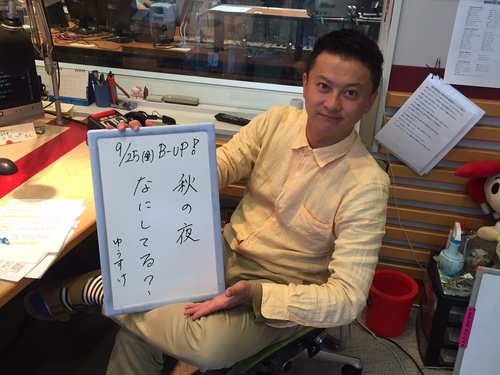 9/25(金)B-UP!
秋の夜
なにしてる?
ゆうすけ